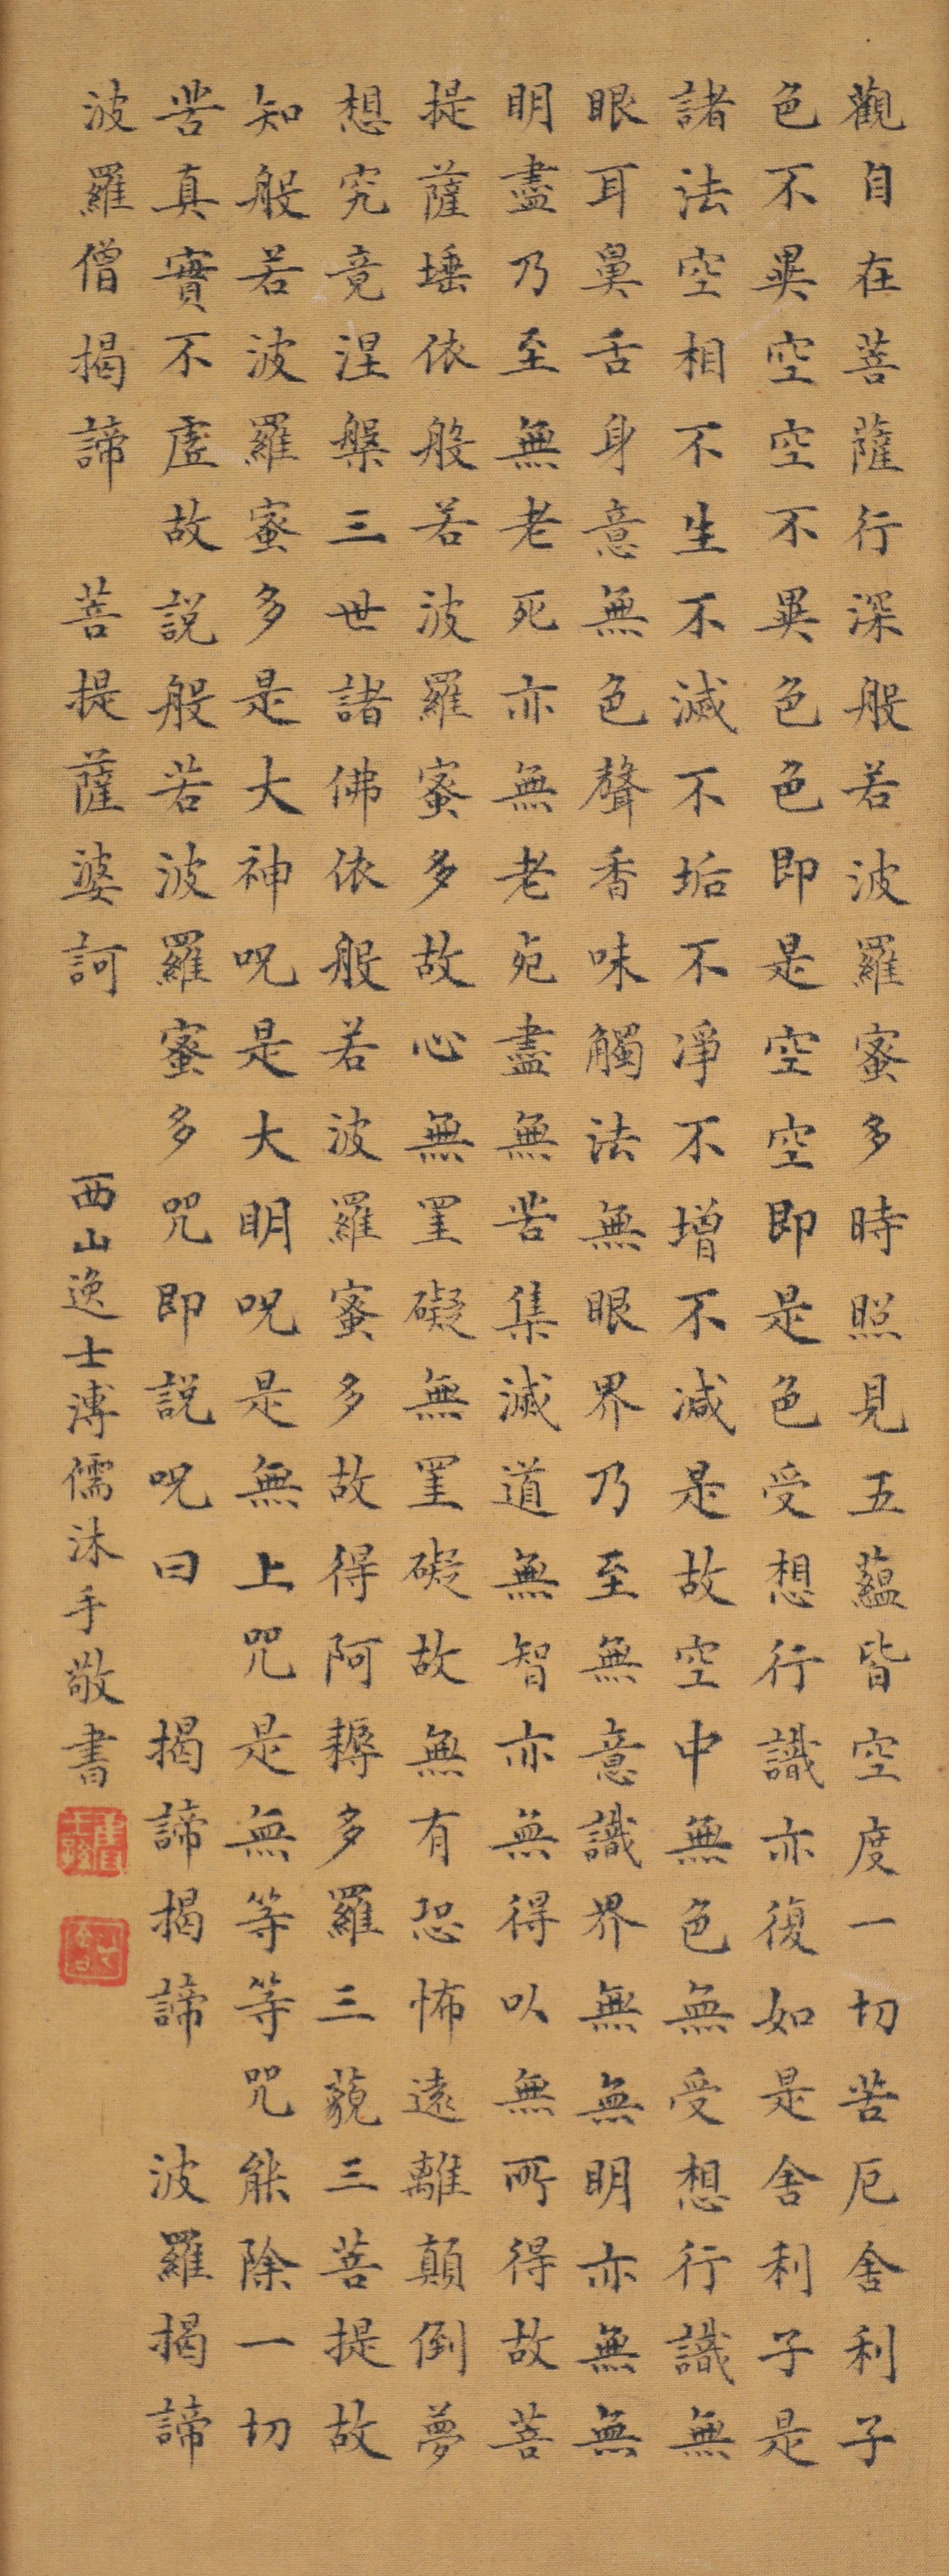 觀自在菩薩行深般若波羅蜜多時照見五蘊皆空度一切苦厄舍利子
色不異空空不異色色即是空空即是色受想行識亦復如是舍利子是
諸法空相不生不滅不垢不淨不增不減是故空中無色無受想行識無
眼耳鼻舌身意無色聲香味觸法無眼界乃至無意識界無無明亦無無
明盡乃至無老死亦無老死盡無苦集滅道無智亦無得以無所得故菩
提薩埵依般若波羅蜜多故心無罣礙無罣礙故無有恐怖遠離顛倒夢
想究竟涅槃三世諸佛依般若波羅蜜多故得阿耨多羅三藐三菩提故
知般若波羅蜜多是大神呪是大明呪是無上咒是無等等咒能除一切
苦真實不虛故說般若波羅蜜多咒即說呪曰 揭諦揭諦 波羅揭諦
波羅僧揭諦 菩提薩婆訶
西山逸士溥儒沐手敬書